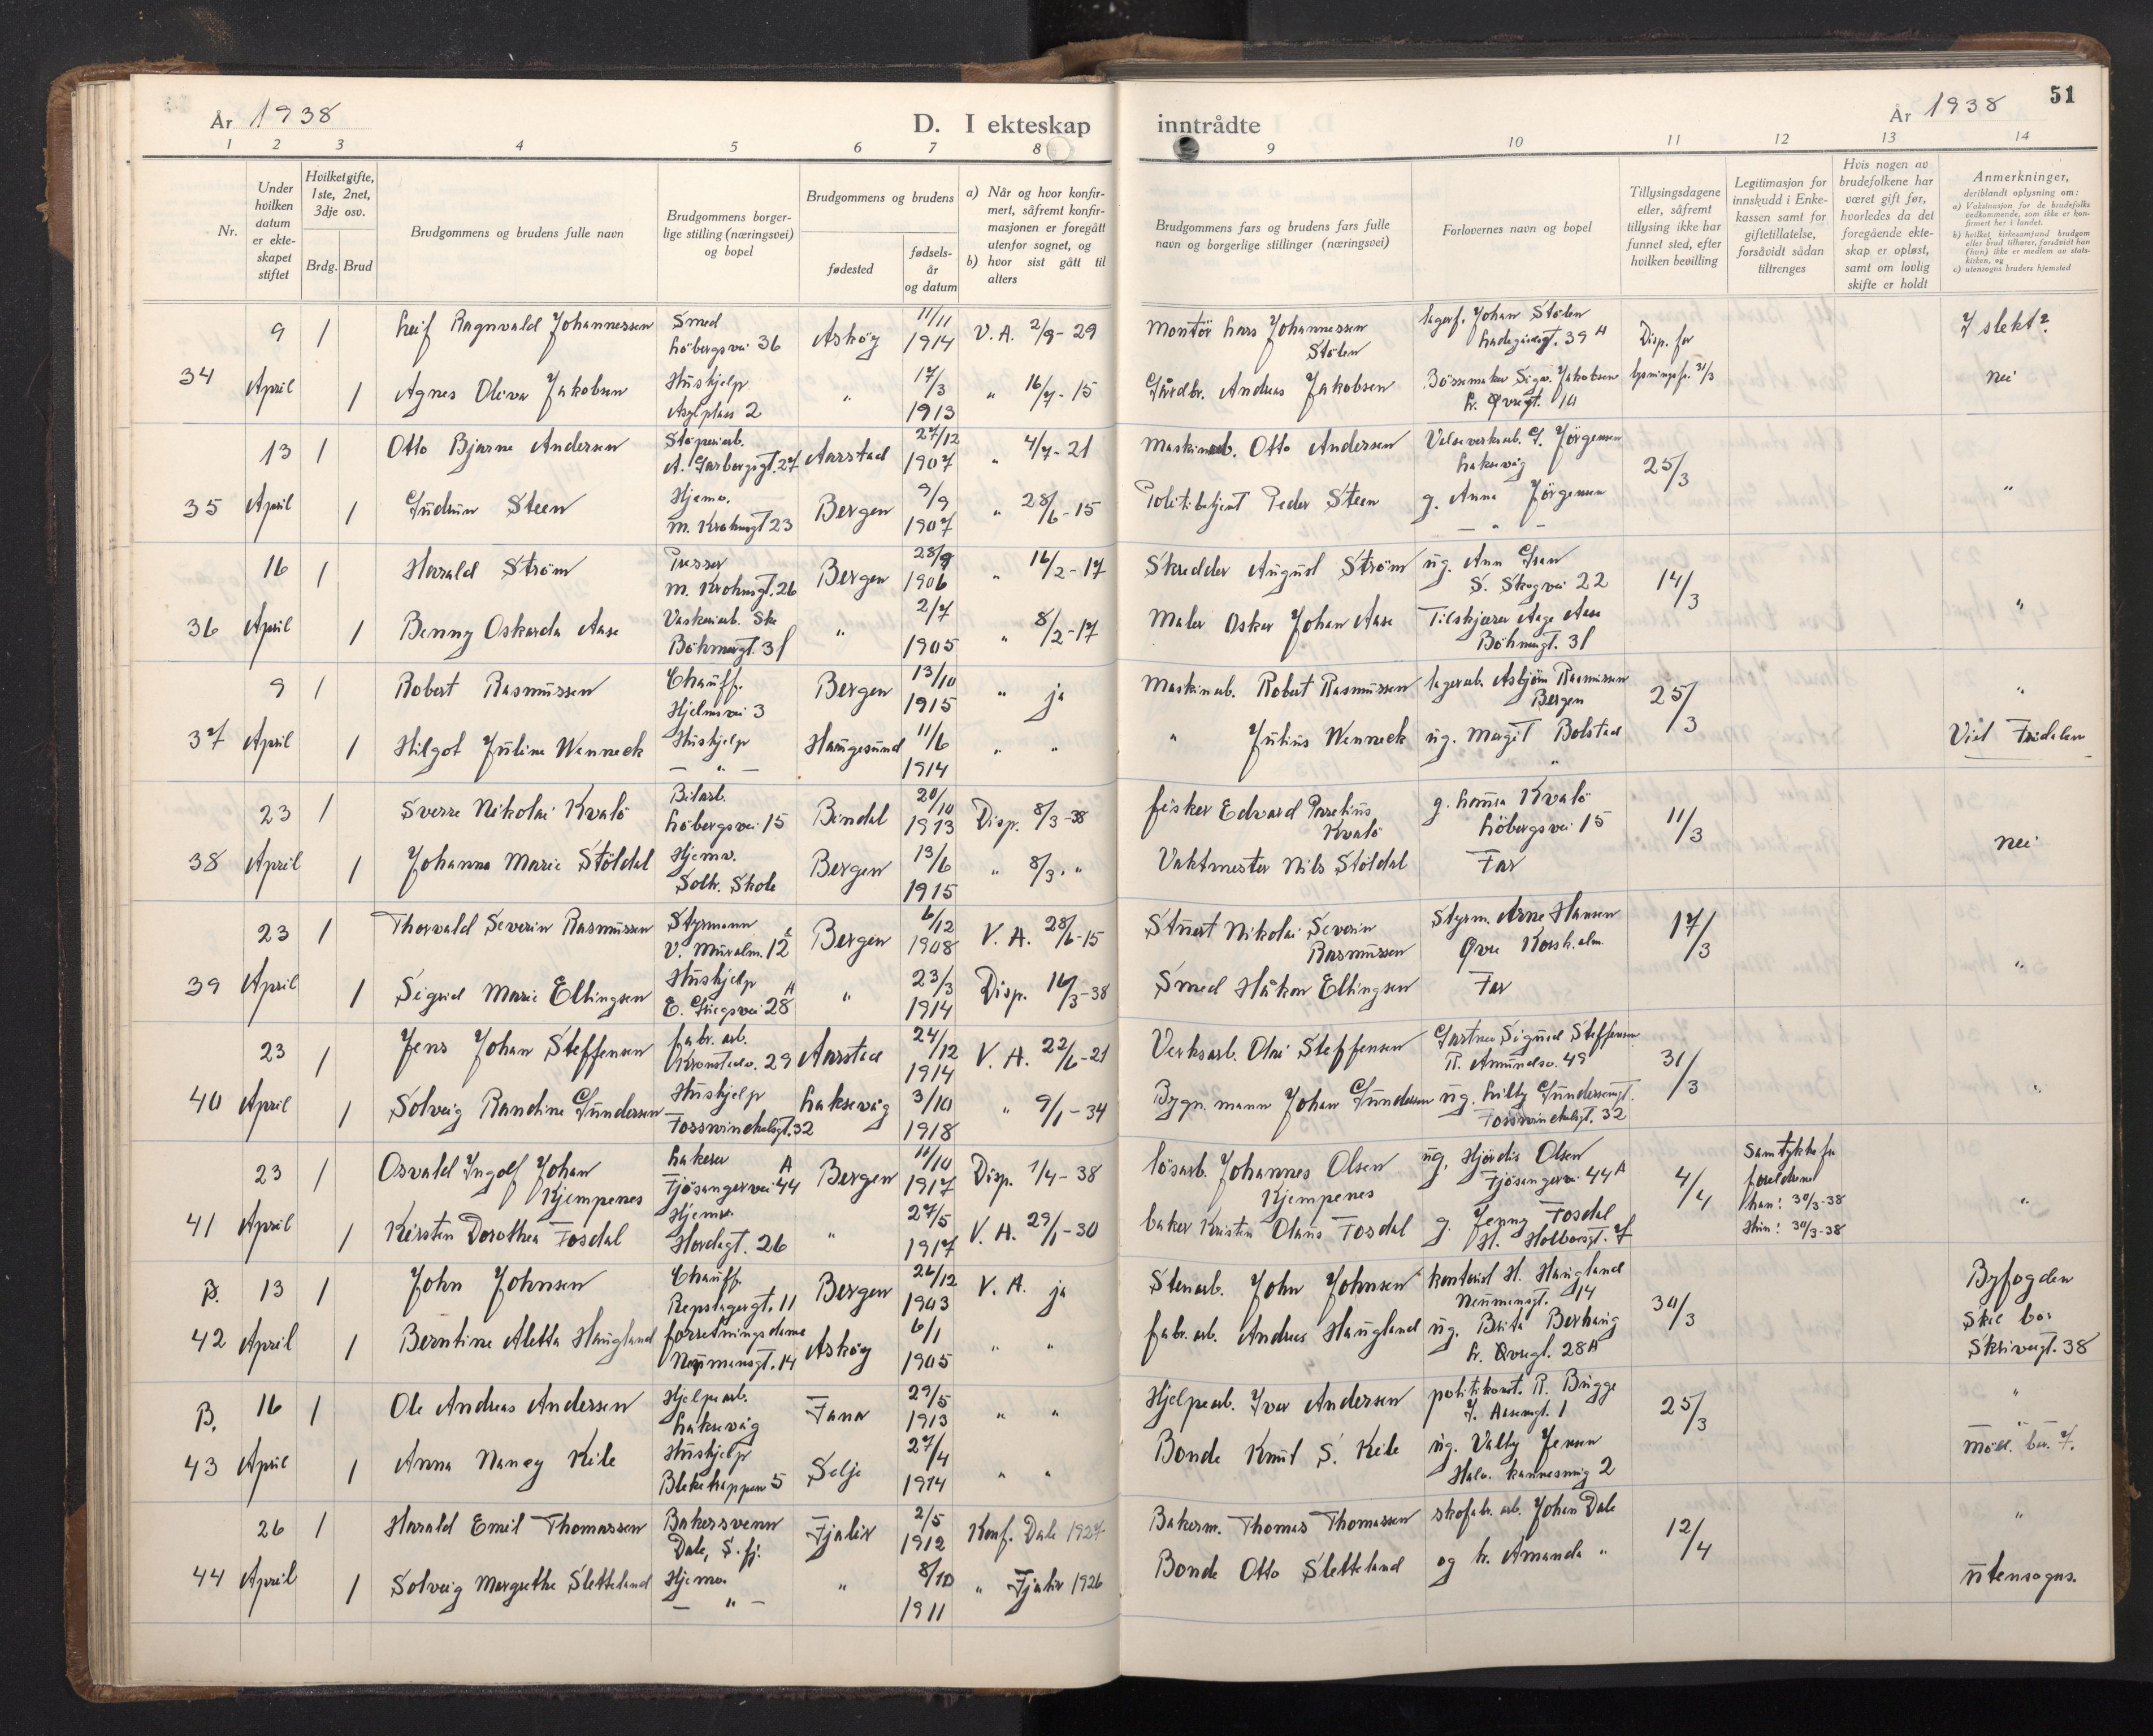 År 1938
D. I ekteskap inntrådte
År 1938
51
1 2 3 4 5 6 7 8 9 10 11 12 13 14
Nr.
Under hvilken datum er ekteskapet stiftet
Hvilket gifte, 1ste, 2net, 3dje osv.
Brdg. Brud
Brudgommens og brudens fulle navn
Brudgommens borgerlige stilling (næringsvei) og bopel
Brudgommens og brudens
fødested
fødselsår og datum
a) Når og hvor konfirmert, såfremt konfirmasjonen er foregått utenfor sognet, og
b) hvor sist gått til alters
Brudgommens fars og brudens fars fulle navn og borgerlige stillinger (næringsvei)
Forlovernes navn og bopel
Tillysingsdagene eller, såfremt tillysing ikke har funnet sted, efter hvilken bevilling
Legitimasjon for innskudd i Enkekassen samt for giftetillatelse, forsåvidt sådan tiltrenges
Hvis nogen av brudefolkene har været gift før, hvorledes da det foregående ekteskap er opløst, samt om lovlig skifte er holdt
Anmerkninger, deriblandt oplysning om:
a) Vaksinasjon for de brudefolks vedkommende, som ikke er konfirmert her i landet.
b) hvilket kirkesamfund brudgom eller brud tilhører, forsåvidt han (hun) ikke er medlem av statskirken, og
c) utensogns bruders hjemsted
34 9 April
1 Leif Ragnvald Johannessen Smed Löbergsvei 36 Askøy 11/11 1914 V. A. 2/9-29 Montör Lars Johannessen Stölen lagerf. Johan Stölen Ladegårdsgt. 39 A Disp. for I slekt?
1 Agnes Oliva Jakobsen Hushjelp Asylplass 2 " 17/3 1913 " 16/7-15 Gårdbr. Andreas Jakobsen Bössemaker Sigv. Jakobsen L. Øvregt. 10 lysning fr. 31/3 nei
35 13 April
1 Otto Bjarne Andersen Stöperiarb. A. Garborgsgt. 27 Aarstad 27/12 1907 " 4/7-21 Maskinarb. Otto Andersen Valseverksarb. G. Jörgensen Laksevåg 25/3
1 Gudrun Steen Hjemv. M. Krohnsgt 23 Bergen 9/9 1907 " 28/6-15 Politibetjent Peder Steen g. Anna Jörgensen - " - "
36 16 April
1 Harald Ström Presser M. Krohnsgt. 26 Bergen 28/9 1906 " 16/2-17 Skredder August Ström ug. Ann S. Skogvei 22 14/3
1 Benny Oskarda Aase Vaskeriarb. Böhmergt. 31 " 2/7 1905 " 8/2-17 Maler Oskar Johan Aase Tilskjærer Aage Aase Böhmergt. 31 "
37 9 April
1 Robert Rasmussen Chauff. Hjelmsvei 3 Bergen 13/10 1915 " ja Maskinarb. Robert Rasmussen lagerarb. Asbjörn Rasmussen Bergen 25/3 "
1 Hilgot Juline Wenneck Hushjelp - " - Haugesund 11/6 1914 " " " Julius Wenneck ug. Magit Bolstad " Viet Fridalen
38 23 April
1 Sverre Nikolai Kvalö Bilarb. Löbergsvei 15 Bindal 20/10 1913 Disp. 8/3-38 fisker Edvard Kvalö g. Kvalö Löbergsvei 15 11/3
1 Johanna Marie Stöldal Hjemv. Solh. Skole Bergen 13/6 1915 " 8/3. " Vaktmester Nils Stöldal Far nei
39 23 April
1 Thorvald Severin Rasmussen Styrmann V. Muralm. 12 Bergen 6/12 1908 V. A. 28/6-15 Stuert Nikolai Severin Rasmussen Styrm. Arne Hansen Øvre Korsk.alm. 17/3
1 Sigrid Marie Ellingsen Hushjelp E. Griegsvei 28 A " 23/3 1914 Disp. 16/3-38 Smed Håkon Ellingsen Far "
40 23 April
1 Jens Johan Steffensen fabr. arb. Kronstadv. 29 Aarstad 24/12 1914 V. A. 22/6-21 Verksarb. Olai Steffensen Gartner Sigurd Steffensen R. Amundsv. 49 31/3
1 Solveig Randine Gundersen Hushjelp Fosswinckelsgt. 32 Laksevåg 3/10 1918 " 9/1-34 Bygn. mann Johan Gundersen ug. Lilly Gundersen Fosswinckelsgt. 32 "
41 23 April
1 Osvald Ingolf Johan Kjempenes Lakerer Fjösangervei 44 A Bergen 11/10 1917 Disp. 1/4-38 lösarb. Johannes Olsen Kjempenes ug. Hjördis Olsen Fjösangervei 44 A 4/4 Samtykke fr foreldrene
1 Kirsten Dorothea Fosdal Hjemv. Hordagt. 26 " 27/5 1917 V. A. 29/1-30 baker Kristen Olaus Fosdal g. Jenny Fosdal H. Holbergt. 7 han: 30/3-38 Hun: 30/3-38 "
B. 42 13 April
1 John Johnsen Chauff. Repslagergt. 11 Bergen 26/12 1903 V. A. ja Stenarb. John Johnsen kontorist H. Haugland Neumannsgt. 14 30/3 Byfogden
1 Berntine Aletta Haugland forretningsdame Neumannsgt. 14 Askøy 6/1 1905 " " fabr. arb. Andreas Haugland ug. Brita Berhaug L. Øvregt. 28 A Skal bo: Skiveregt. 38
B. 43 16 April
1 Ole Andreas Andersen Hjelpearb. Laksevåg Fana 29/5 1913 " " Hjelpearb. Ivar Andersen politikonst. R. Brügge I. Aasensgt. 1 25/3 "
1 Anna Nancy Kile Hushjelp Blekehappen 5 Selje 27/4 1914 " " Bonde Knut S. Kile ug. Valby Jensen Halv. Kannesmug 2
44 26 April
1 Harald Emil Thomassen Bakersvenn Dale, S. fj. Fjaler 2/5 1912 Konf. Dale 1927 Bakerm. Thomas Thomassen skofabr. arb. Johan Dale 12/4 "
1 Solveig Margrethe Sletteland Hjemv. - " - " 8/10 1911 " Fjaler 1926 Bonde Otto Sletteland og fr. Amanda " utensogns.